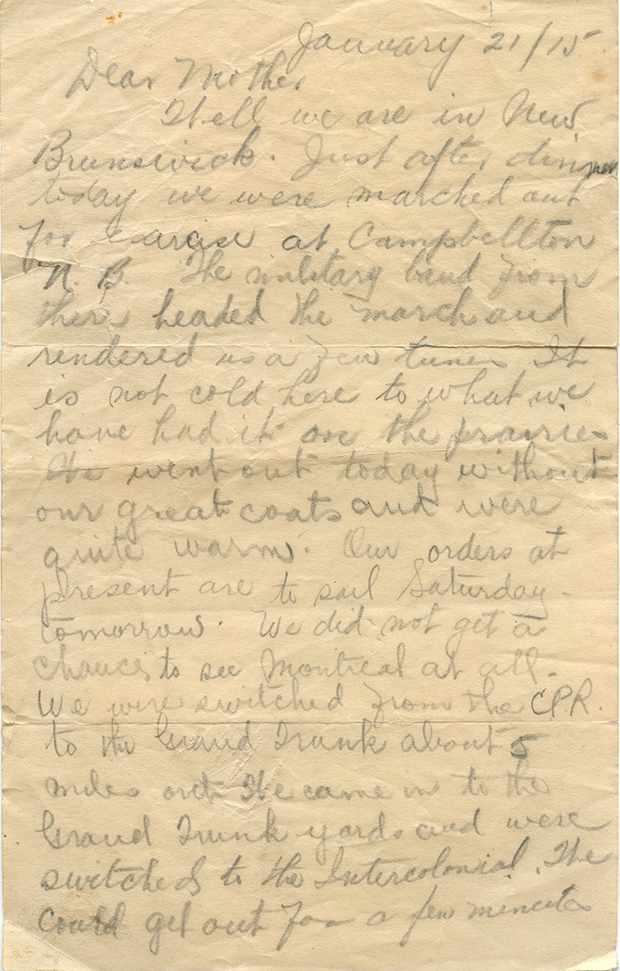 January 21/15
Dear Mother
Well we are in New
Brunswick. Just after dinner
today we were marched out
for exarcise at Campbellton
N. B. The military band from
there headed the march and
rendered us a few tunes. It
is not cold here to what we
have had it on the prairies
We went out today without
our great coats and were
quite warm. Our orders at
present are to sail Saturday -
tomorrow. We did not get a
chance to see Montreal at all.
We were switched from the CPR.
to the Grand Trunk about 5
miles out. We came in to the
Grand Trunk yards and were
switched to the Intercolonial. We
could get out for a few minutes